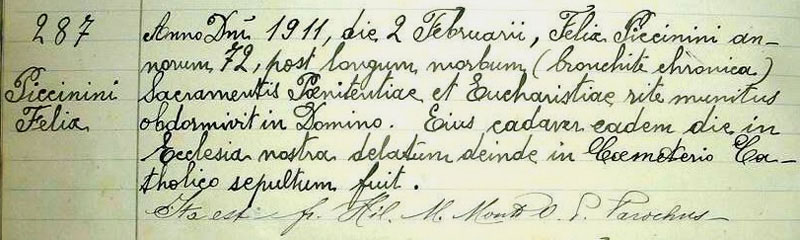 287
Piccinini
Felix
Anno Dni 1911, die 2 Februarii, Felix Piccinini an-
norum 72, post longum morbum (bronchite chronica)
Sacramentis Pœnitentiae et Eucharistiae rite munitus
obdormivit in Domino. Eius cadaver eadem die in
Ecclesia nostra delatum deinde in Cœmeterio Ca-
tholico sepultum fuit.
Ita est fr. Hil. M. O. P. Parochus